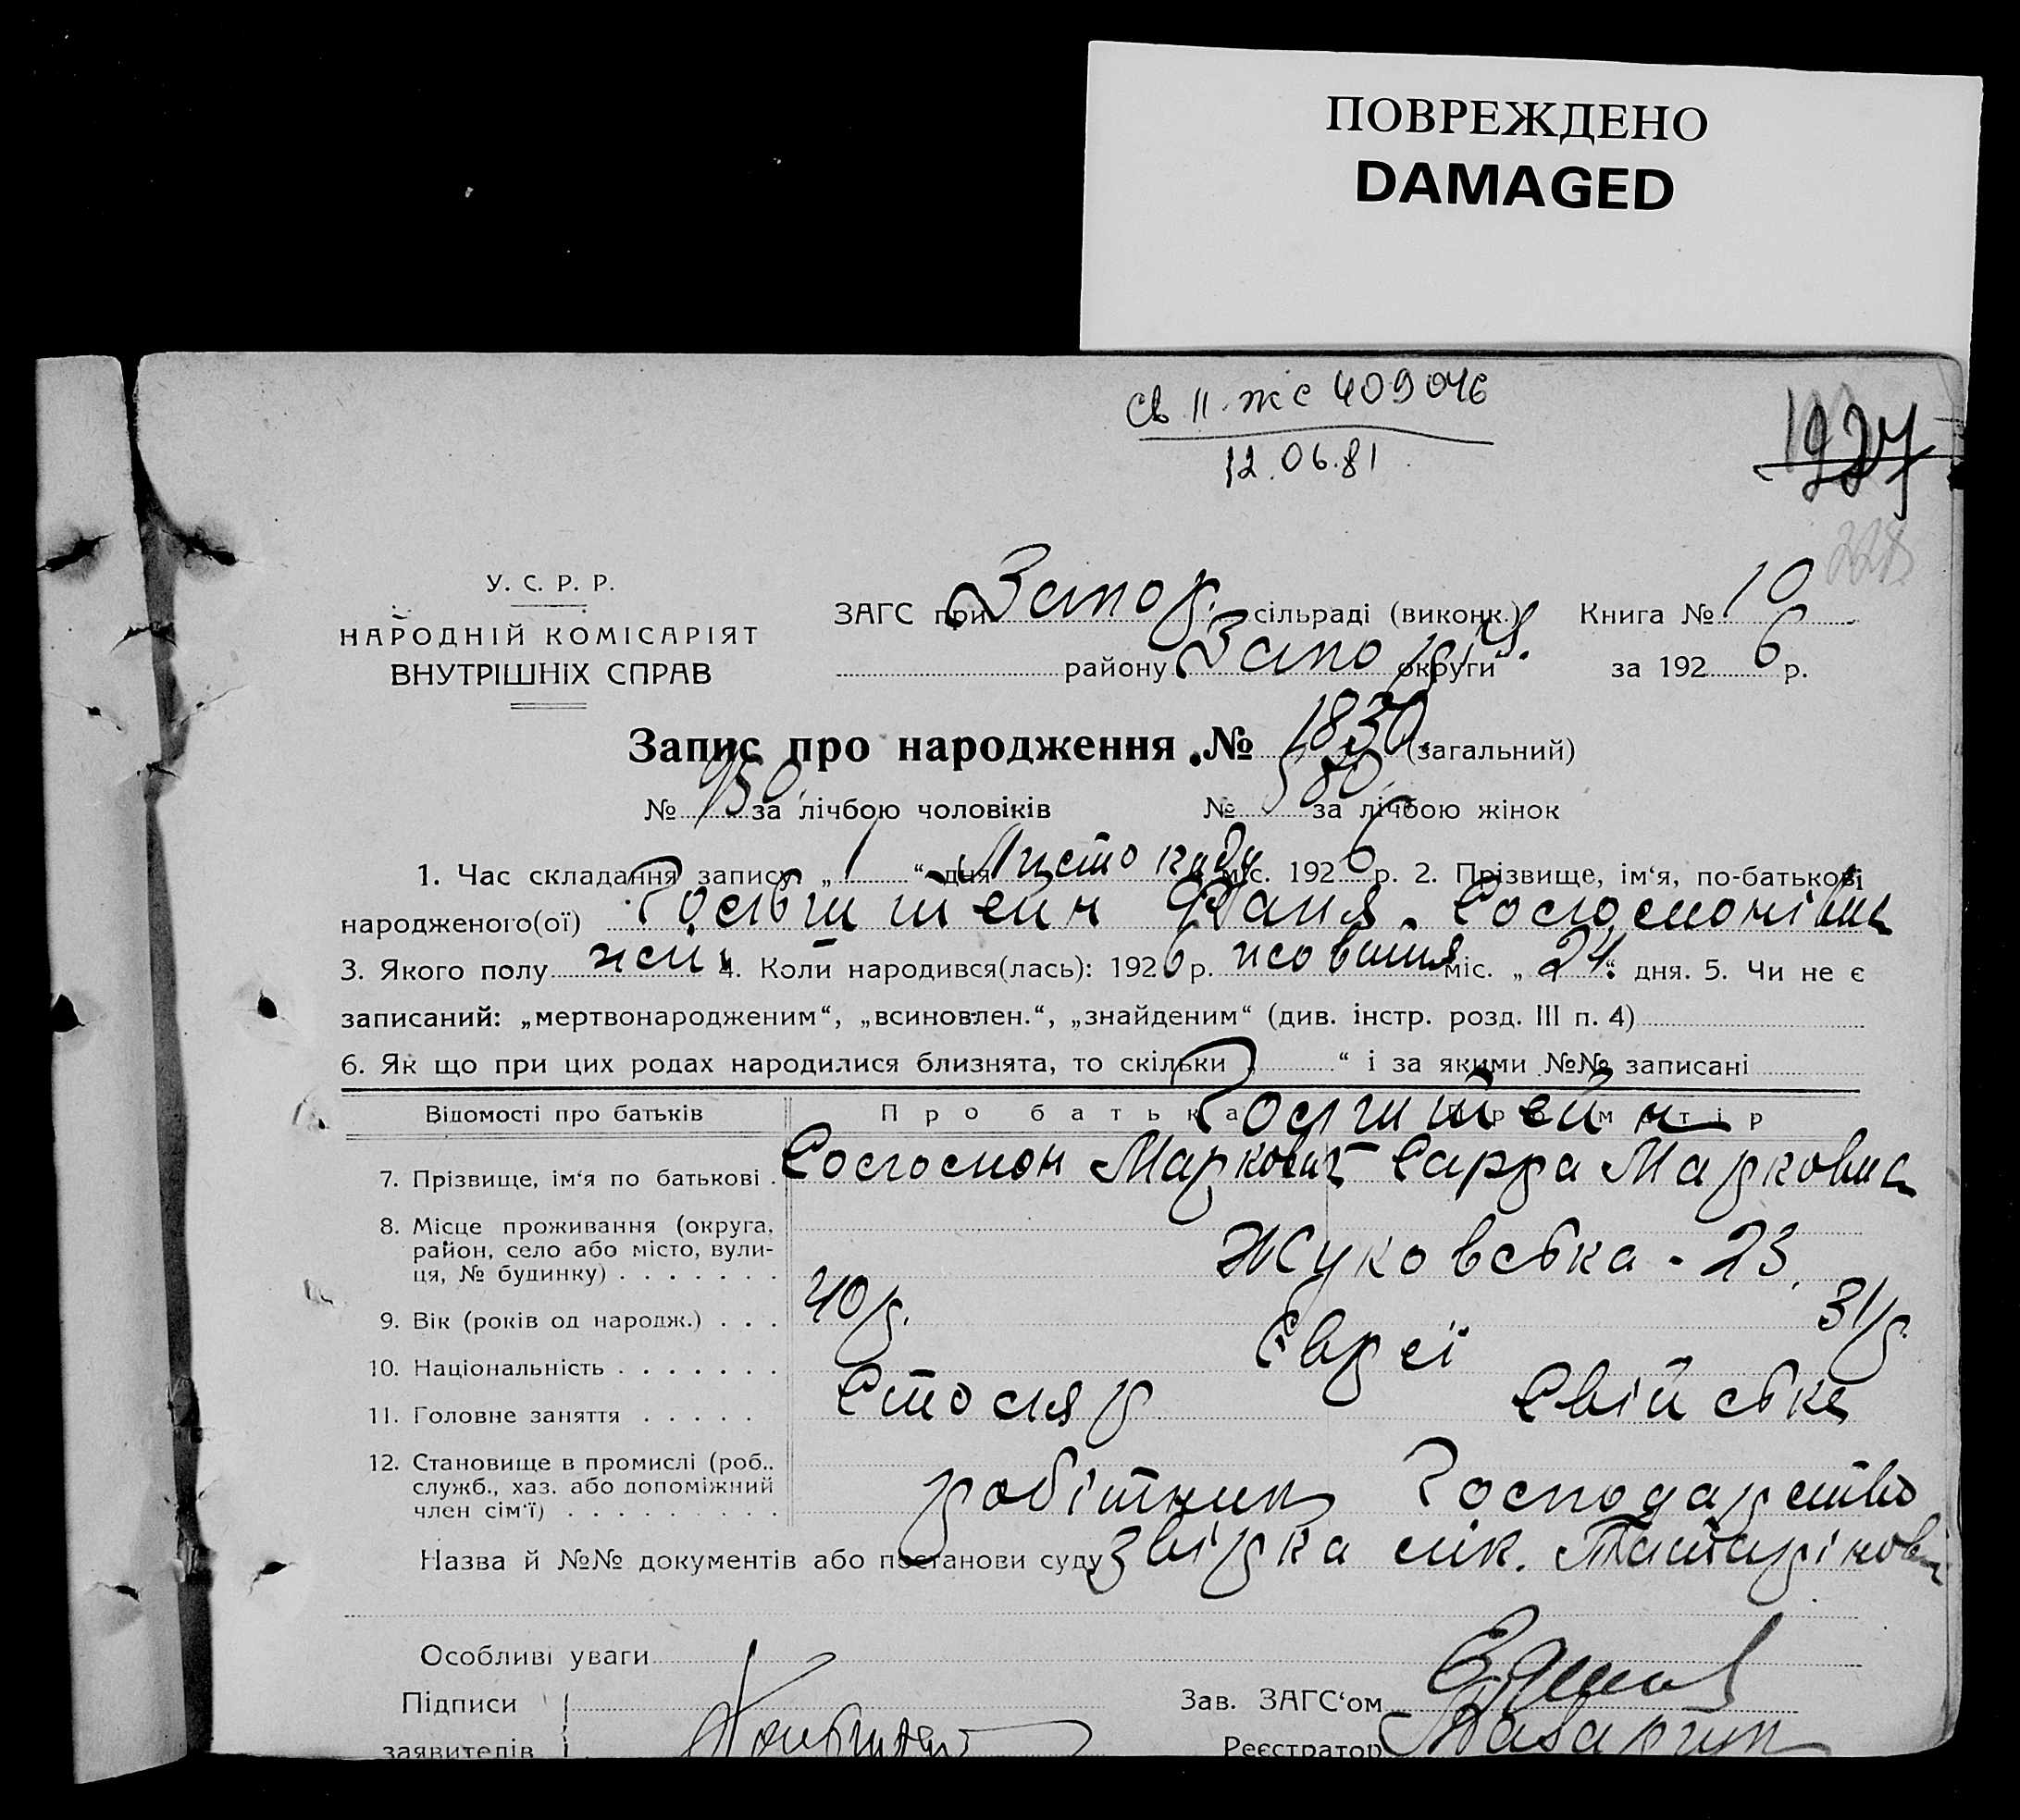 ПОВРЕЖДЕНО
DAMAGED
св II. жс 409046
12.06.81
1927
228
У. С. Р. Р.
НАРОДНІЙ КОМІСАРІЯТ
ВНУТРІШНІХ СПРАВ
ЗАГС при Запор. сільраді (виконк.) Книга № 10
району Запоріз. округи за 1926 р.
Запис про народження № 1830 (загальний)
№ 950 за лічбою чоловіків № 880 за лічбою жінок
1. Час складання запису „ 1 “ дня Листопаду міс. 1926 р. 2. Прізвище, ім‘я, по-батькові
народженого(ої) Гольдштейн Фаня Соломонівна
3. Якого полу жін. 4. Коли народився(лась): 1926 р. жовтня міс. „ 24 “ дня. 5. Чи не є
записаний: „мертвонародженим“, „всиновлен.“, „знайденим“ (див. інстр. розд. III п. 4)
6. Як що при цих родах народилися близнята, то скільки „ “ і за якими №№ записані
Відомості про батьків Про батька Про матір
7. Прізвище, ім‘я по батькові . Соломон Маркович Сарра Марковна
8. Місце проживання (округа,
район, село або місто, вули-
ця, № будинку) . . . . . . . Жуковська - 23.
9. Вік (років од народж.) . . . 40 р. 31 р.
10. Національність . . . . . . . Євреї
11. Головне заняття . . . . . Столяр Свійське
12. Становище в промислі (роб.,
служб., хаз. або допоміжний
член сім‘ї) . . . . . . . . . робітник Господарство
Назва й №№ документів або постанови суду звірка лік.
Особливі уваги
Підписи
Зав. ЗАГС‘ом
заявителів
Реєстратор